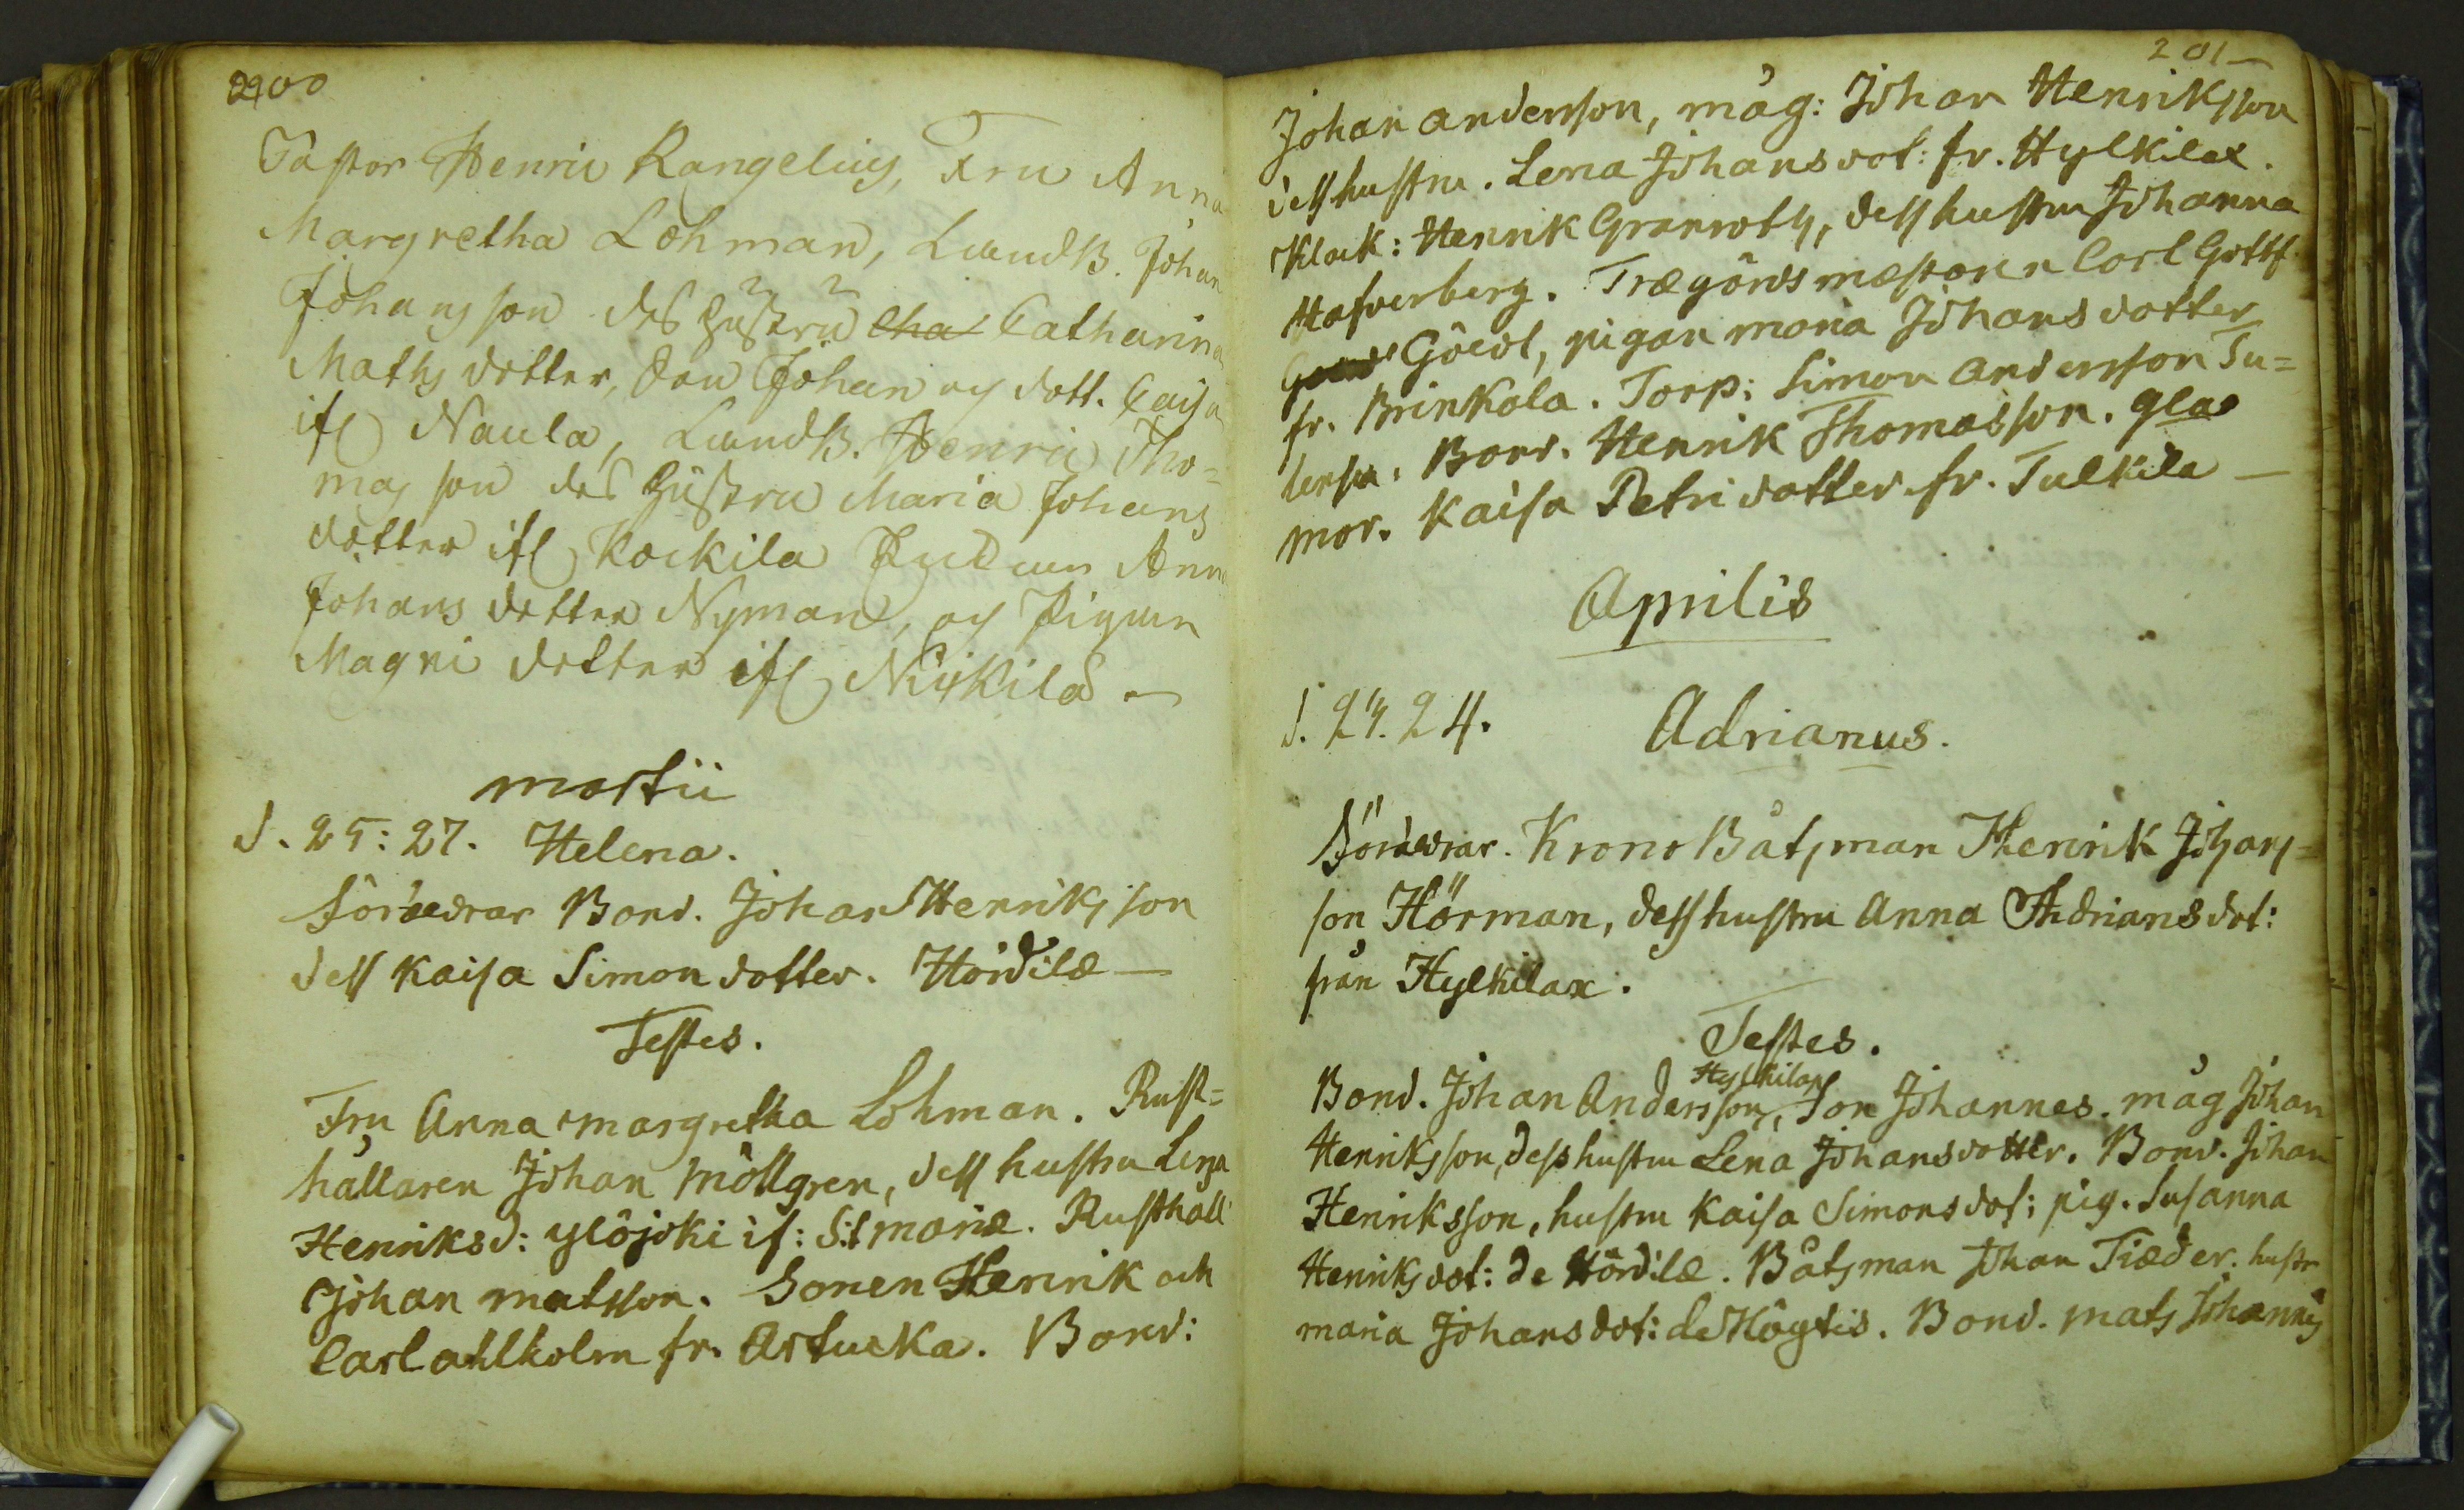 200
Pastor Henric Rangelius, Fru Anna
Margretha Lohman, Landb. Johan
Johansson des hustru Cha Catharina
Maths dotter, Son Johan och dott. Caisa
ifr Naula, Landb. Henric Tho=
mas son des hustru Maria Johans
dotter ifr Kockila Pudam Anna
Johans dotter Nyman, och Pigan
Magni dotter ifr Nuikila
martii
d. 25: 27. Helena.
Föräldrar Bond. Johan Henriksson
dess Kaisa Simondotter. Hördilæ
Testes.
Fru Anna margretha Lohman. Rust=
hållaren Johan Möllgren, dess hustru Lena
Henriksd: ylöjoki if: S:t mariæ. Rusthåll
Johan matsson. Sonen Henrik och
Carl ahlholm fr. Artucka. Bond:
201
Johan andersson, måg: Johan Henriksson
dess hustru. Lena Johansdot: fr. Hylkilax.
Klock: Henrik Granroth, dess hustru Johanna
Hafverberg. Trægårdsmæstaren Carl Gottf.
Göedl, pigan maria Johansdotter
fr. Brinkala. Torp: Simon andersson Tu=
lensu. Bond. Henrik Thomasson. glas
mor. Kaisa Petri dotter fr. Tulkila
Aprilis
d. 24. 24. Adrianus.
Föräldrar. Krono Båtsman Henrik Johans=
son Hörman, dess hustru Anna Andriansdot:
från Hylkilax.
Testes.
Hylkilax
Bond. Johan Andersson, Son Johannes. måg Johan
Henriksson, dess hustru Lena Johansdotter. Bond. Johan
Henriksson, hustru Kaisa Simonsdot: pig. Susanna
Henriksdot: de Hördilæ. Båtsman Johan Tiæder. hustr
maria Johansdot: de Högtis. Bond. mats Johannis